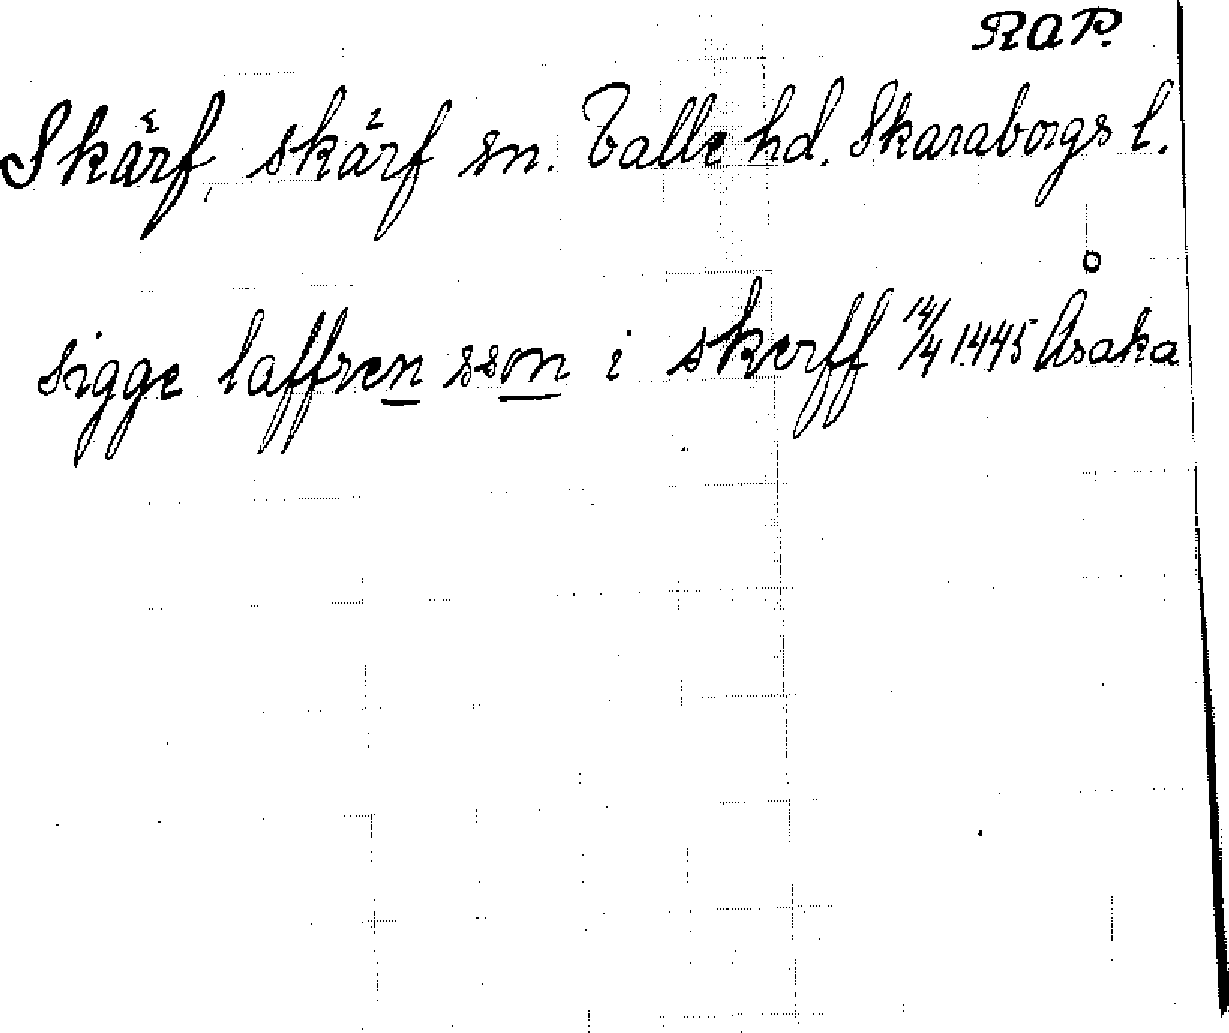 RAP.
Skärf, skärf sn. Valle hd. Skaraborgs l.
sigge laffrensson i skerff 14/4 1445 Åsaka